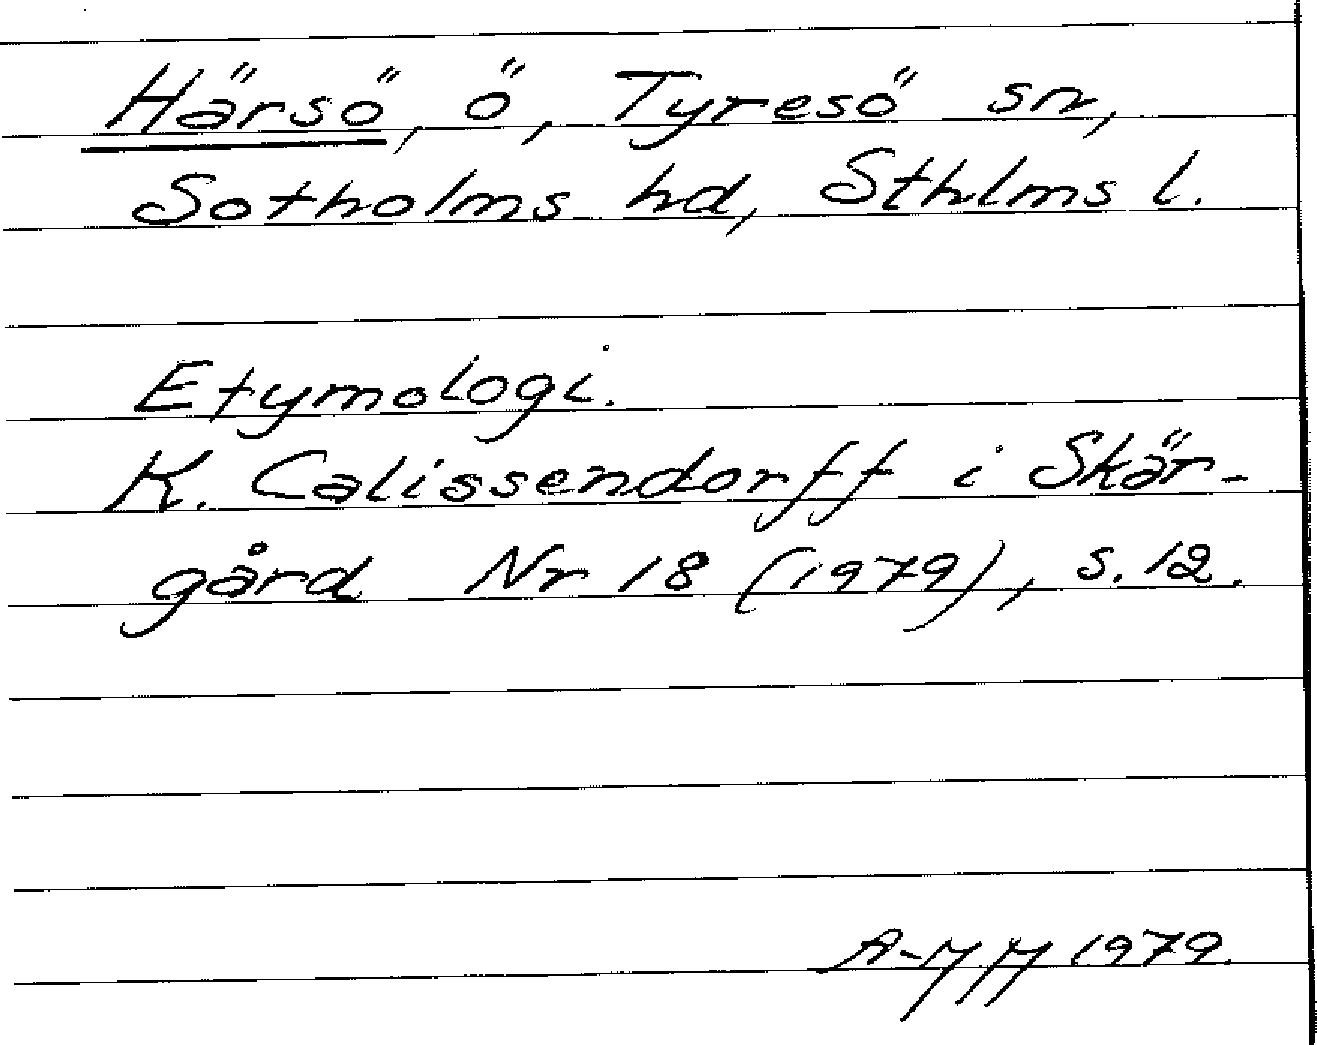 Härsö, ö, Tyresö sn,
Sotholms hd, Sthlms l.
Etymologi.
K. Calissendorff i Skär-
gård Nr 18 (1979), s. 12.
A-MM 1979.